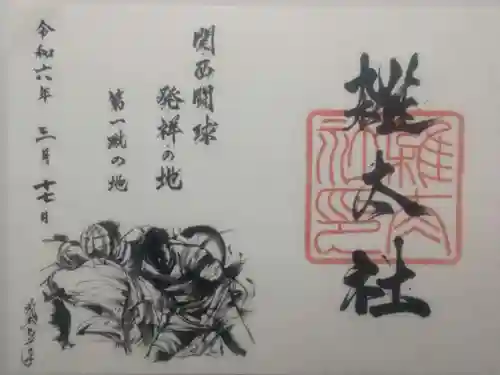 雑太社
関西闘球
発祥の地
第一蹴の地
令和六年 三月 十七日